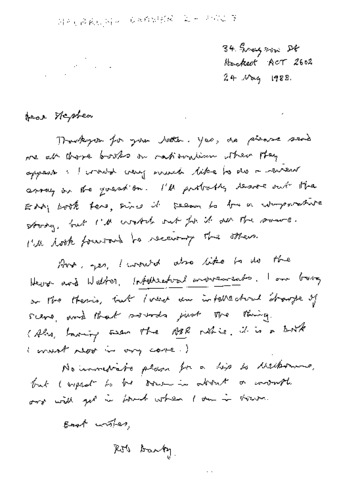 34 Grayson St
Hackett ACT 2602
24 May 1988.
Dear Stephen
Thankyou for your letter. Yes, do please send
me all those books on nationalism when they
appear: I would very much like to do a review
essay on the question. I'll probably leave out the
book tho, since it seems to be a comparative
study, but I'll watch out for it all the same.
I'll look forward to receiving the others.
And, yes, I would also like to do the
Head and Walter, Intellectual movements. I am busy
on the thesis, but I need an intellectual change of
scene, and that sounds just the thing.
(Also, having seen the ABR notice, it is a book
I must read in any case.)
No immediate plans for a trip to Melbourne,
but I expect to be down in about a month
and will get in touch when I am in town.
Best wishes,
Rob Darby.